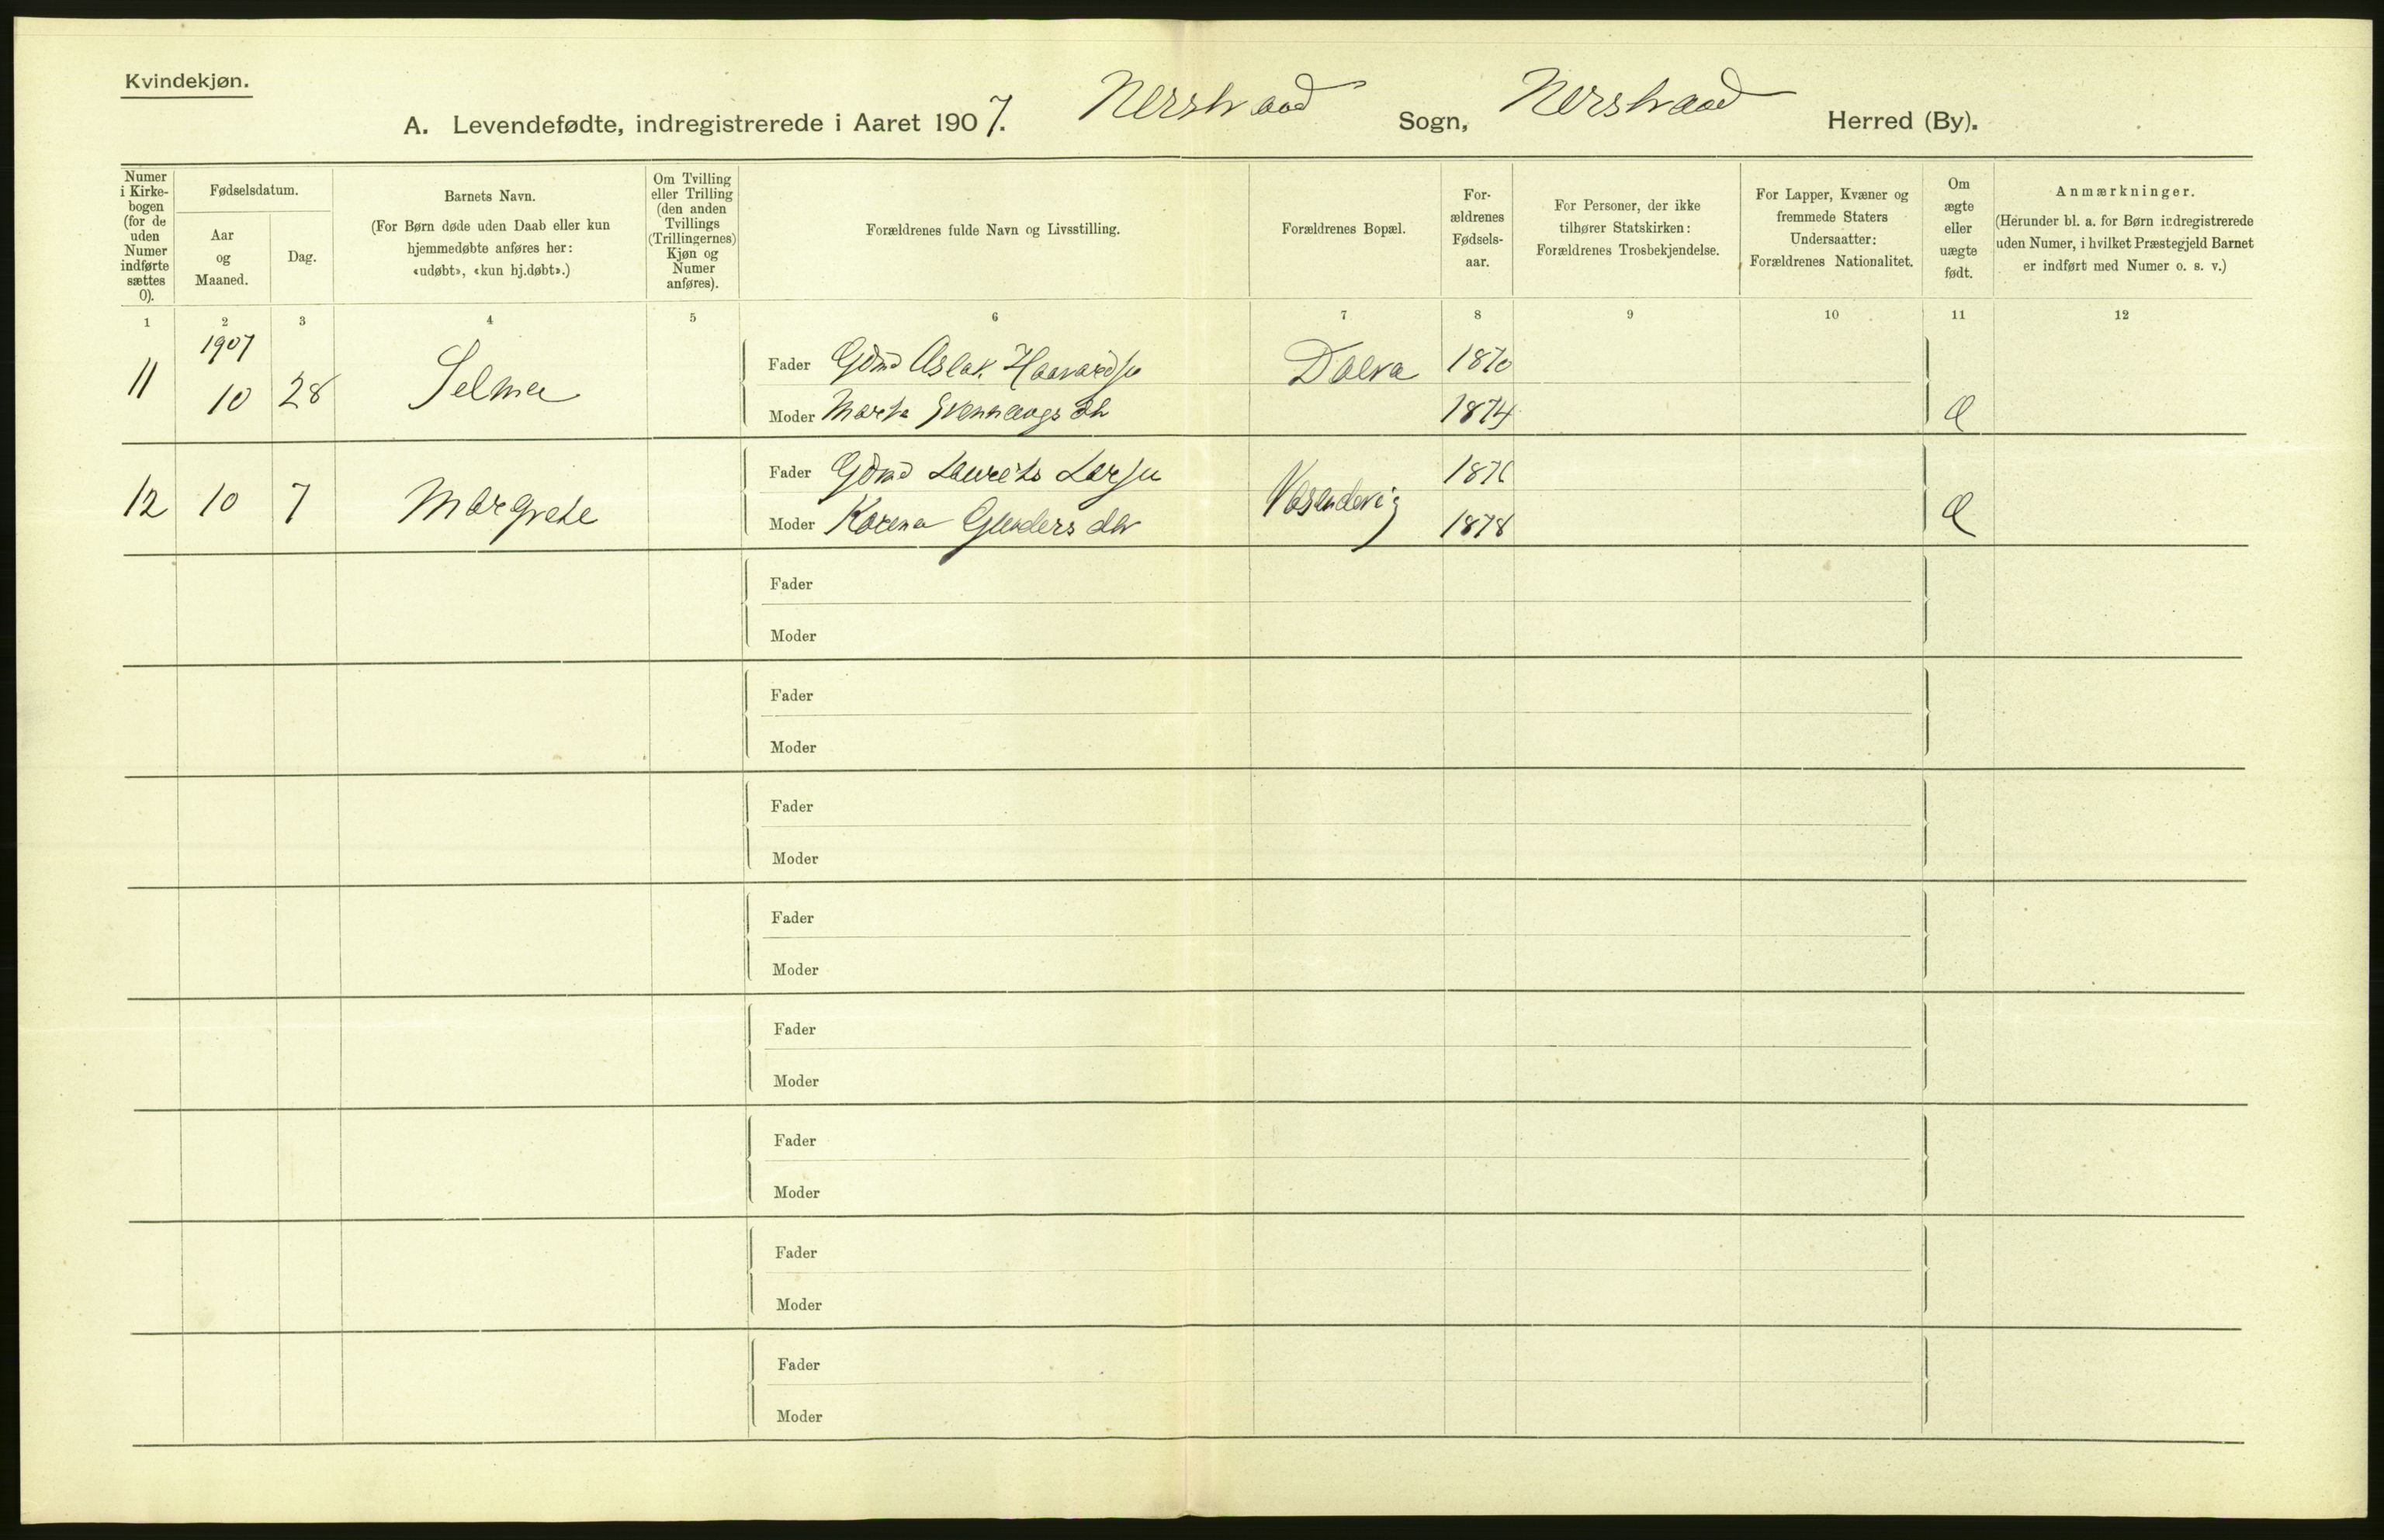 Kvindekjøn.
A. Levendefødte, indregistrerede i Aaret 1907. Nerstrand Sogn, Nerstrand Herred (By).
Numer i Kirkebogen (for de uden Numer indførte sættes 0).
Fødselsdatum.
Aar og Maaned.
Dag.
Barnets Navn.
(For Børn døde uden Daab eller kun hjemmedøbte anføres her: «udøbt», «kun hj.døbt».)
Om Tvilling eller Trilling (den anden Tvillings (Trillingernes) Kjøn og Numer anføres).
Forældrenes fulde Navn og Livsstilling.
Forældrenes Bopæl.
Forældrenes Fødselsaar.
For Personer, der ikke tilhører Statskirken: Forældrenes Trosbekjendelse.
For Lapper, Kvæner og fremmede Staters Undersaatter: Forældrenes Nationalitet.
Om ægte eller uægte født.
Anmærkninger.
(Herunder bl. a. for Børn indregistrerede uden Numer, i hvilket Præstegjeld Barnet er indført med Numer o. s. v.)
1 2 3 4 5 6 7 8 9 10 11 12
1907
11 10 28 Selma Fader Gdmd Aslak Haavardsen Dalva 1870
Moder Marta 1874 Æ
12 10 7 Margrete Fader Gdmd Laurits Larsen 1876
Moder Karena 1878 Æ
Fader
Moder
Fader
Moder
Fader
Moder
Fader
Moder
Fader
Moder
Fader
Moder
Fader
Moder
Fader
Moder